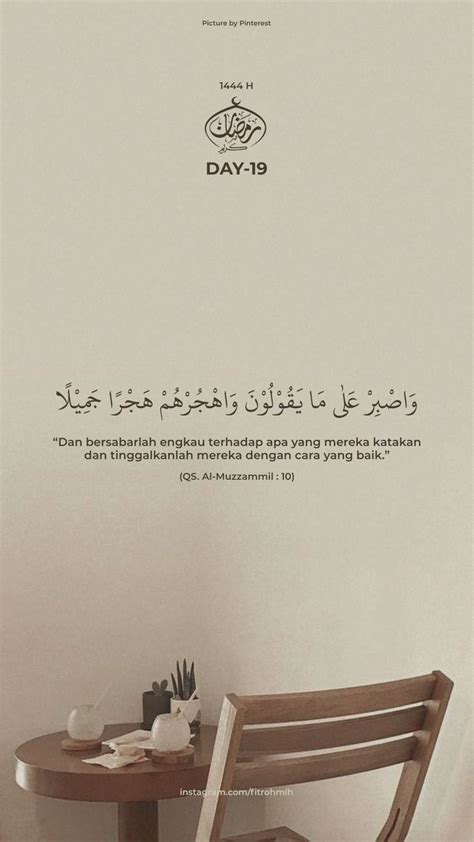 Picture by Pinterest
1444 H
رمضان
كريم
DAY-19
وَاصْبِرْ عَلٰى مَا يَقُوْلُوْنَ وَاهْجُرْهُمْ هَجْرًا جَمِيْلًا
“Dan bersabarlah engkau terhadap apa yang mereka katakan
dan tinggalkanlah mereka dengan cara yang baik.”
(QS. Al-Muzzammil : 10)
instagram.com/fitrohmlh